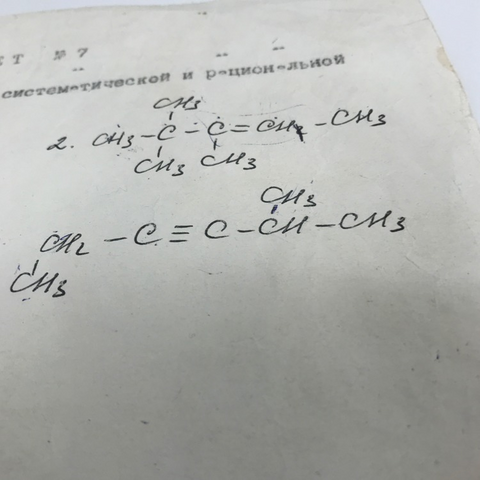 ЕТ № 7
систематической и рациональной
CH3
2. CH3 – C – C = CH – CH3
CH3 CH3
CH3
CH2 – C ≡ C – CH – CH3
CH3